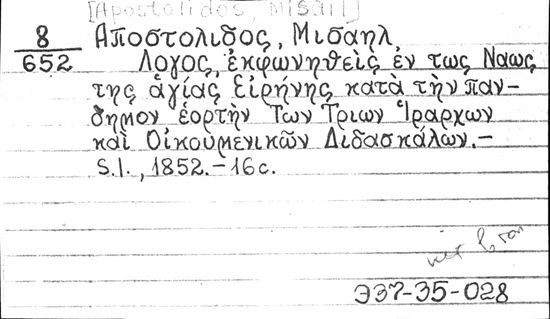 [Apostolidos, Misail]
8 Αποστολιδος, Μισαηλ
652 Λογος, ἐκφωνηθεὶς ἐν τως Ναως
της ἁγίας Εἰρήνης κατὰ τὴν παν-
δημον ἑορτὴν Των Τριων Ἱραρχων
καὶ Οἰκουμενικῶν Διδασκάλων.–
S.l., 1852.–16c.
нет
Э37-35-028